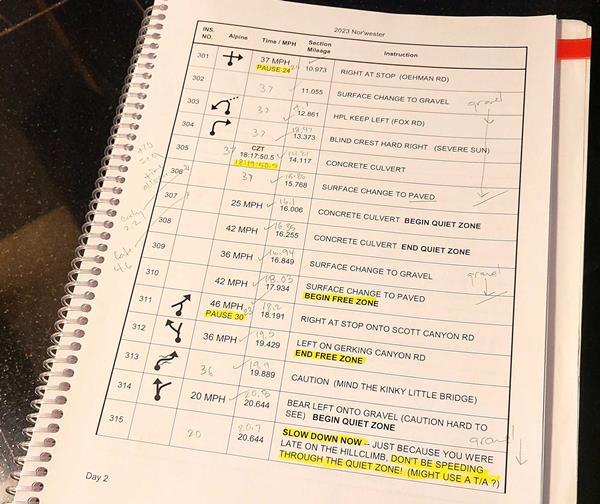 2023 Nor'wester
INS. NO. Alpine Time / MPH Section Mileage Instruction
301 37 MPH 10.973 RIGHT AT STOP (OEHMAN RD)
PAUSE 24
302 37 11.055 SURFACE CHANGE TO GRAVEL
gravel
303 37 12.861 HPL KEEP LEFT (FOX RD)
304 37 13.373 BLIND CREST HARD RIGHT (SEVERE SUN)
305 37 CZT 14.117 CONCRETE CULVERT
18:17:50.5
306 37 15.768 SURFACE CHANGE TO PAVED
307 25 MPH 16.1 16.006 CONCRETE CULVERT BEGIN QUIET ZONE
308 42 MPH 16.255 CONCRETE CULVERT END QUIET ZONE
309 36 MPH 16.94 16.849 SURFACE CHANGE TO GRAVEL
gravel
310 42 MPH 18.03 17.934 SURFACE CHANGE TO PAVED
BEGIN FREE ZONE
311 46 MPH 18.2 18.191 RIGHT AT STOP ONTO SCOTT CANYON RD
PAUSE 30
312 36 MPH 19.5 19.429 LEFT ON GERKING CANYON RD
END FREE ZONE
313 36 19.9 19.889 CAUTION (MIND THE KINKY LITTLE BRIDGE)
314 20 MPH 20.8 20.644 BEAR LEFT ONTO GRAVEL (CAUTION HARD TO
SEE) BEGIN QUIET ZONE
gravel
315 20 20.7 20.644 SLOW DOWN NOW -- JUST BECAUSE YOU WERE
LATE ON THE HILLCLIMB, DON'T BE SPEEDING
THROUGH THE QUIET ZONE! (MIGHT USE A T/A ?)
Day 2